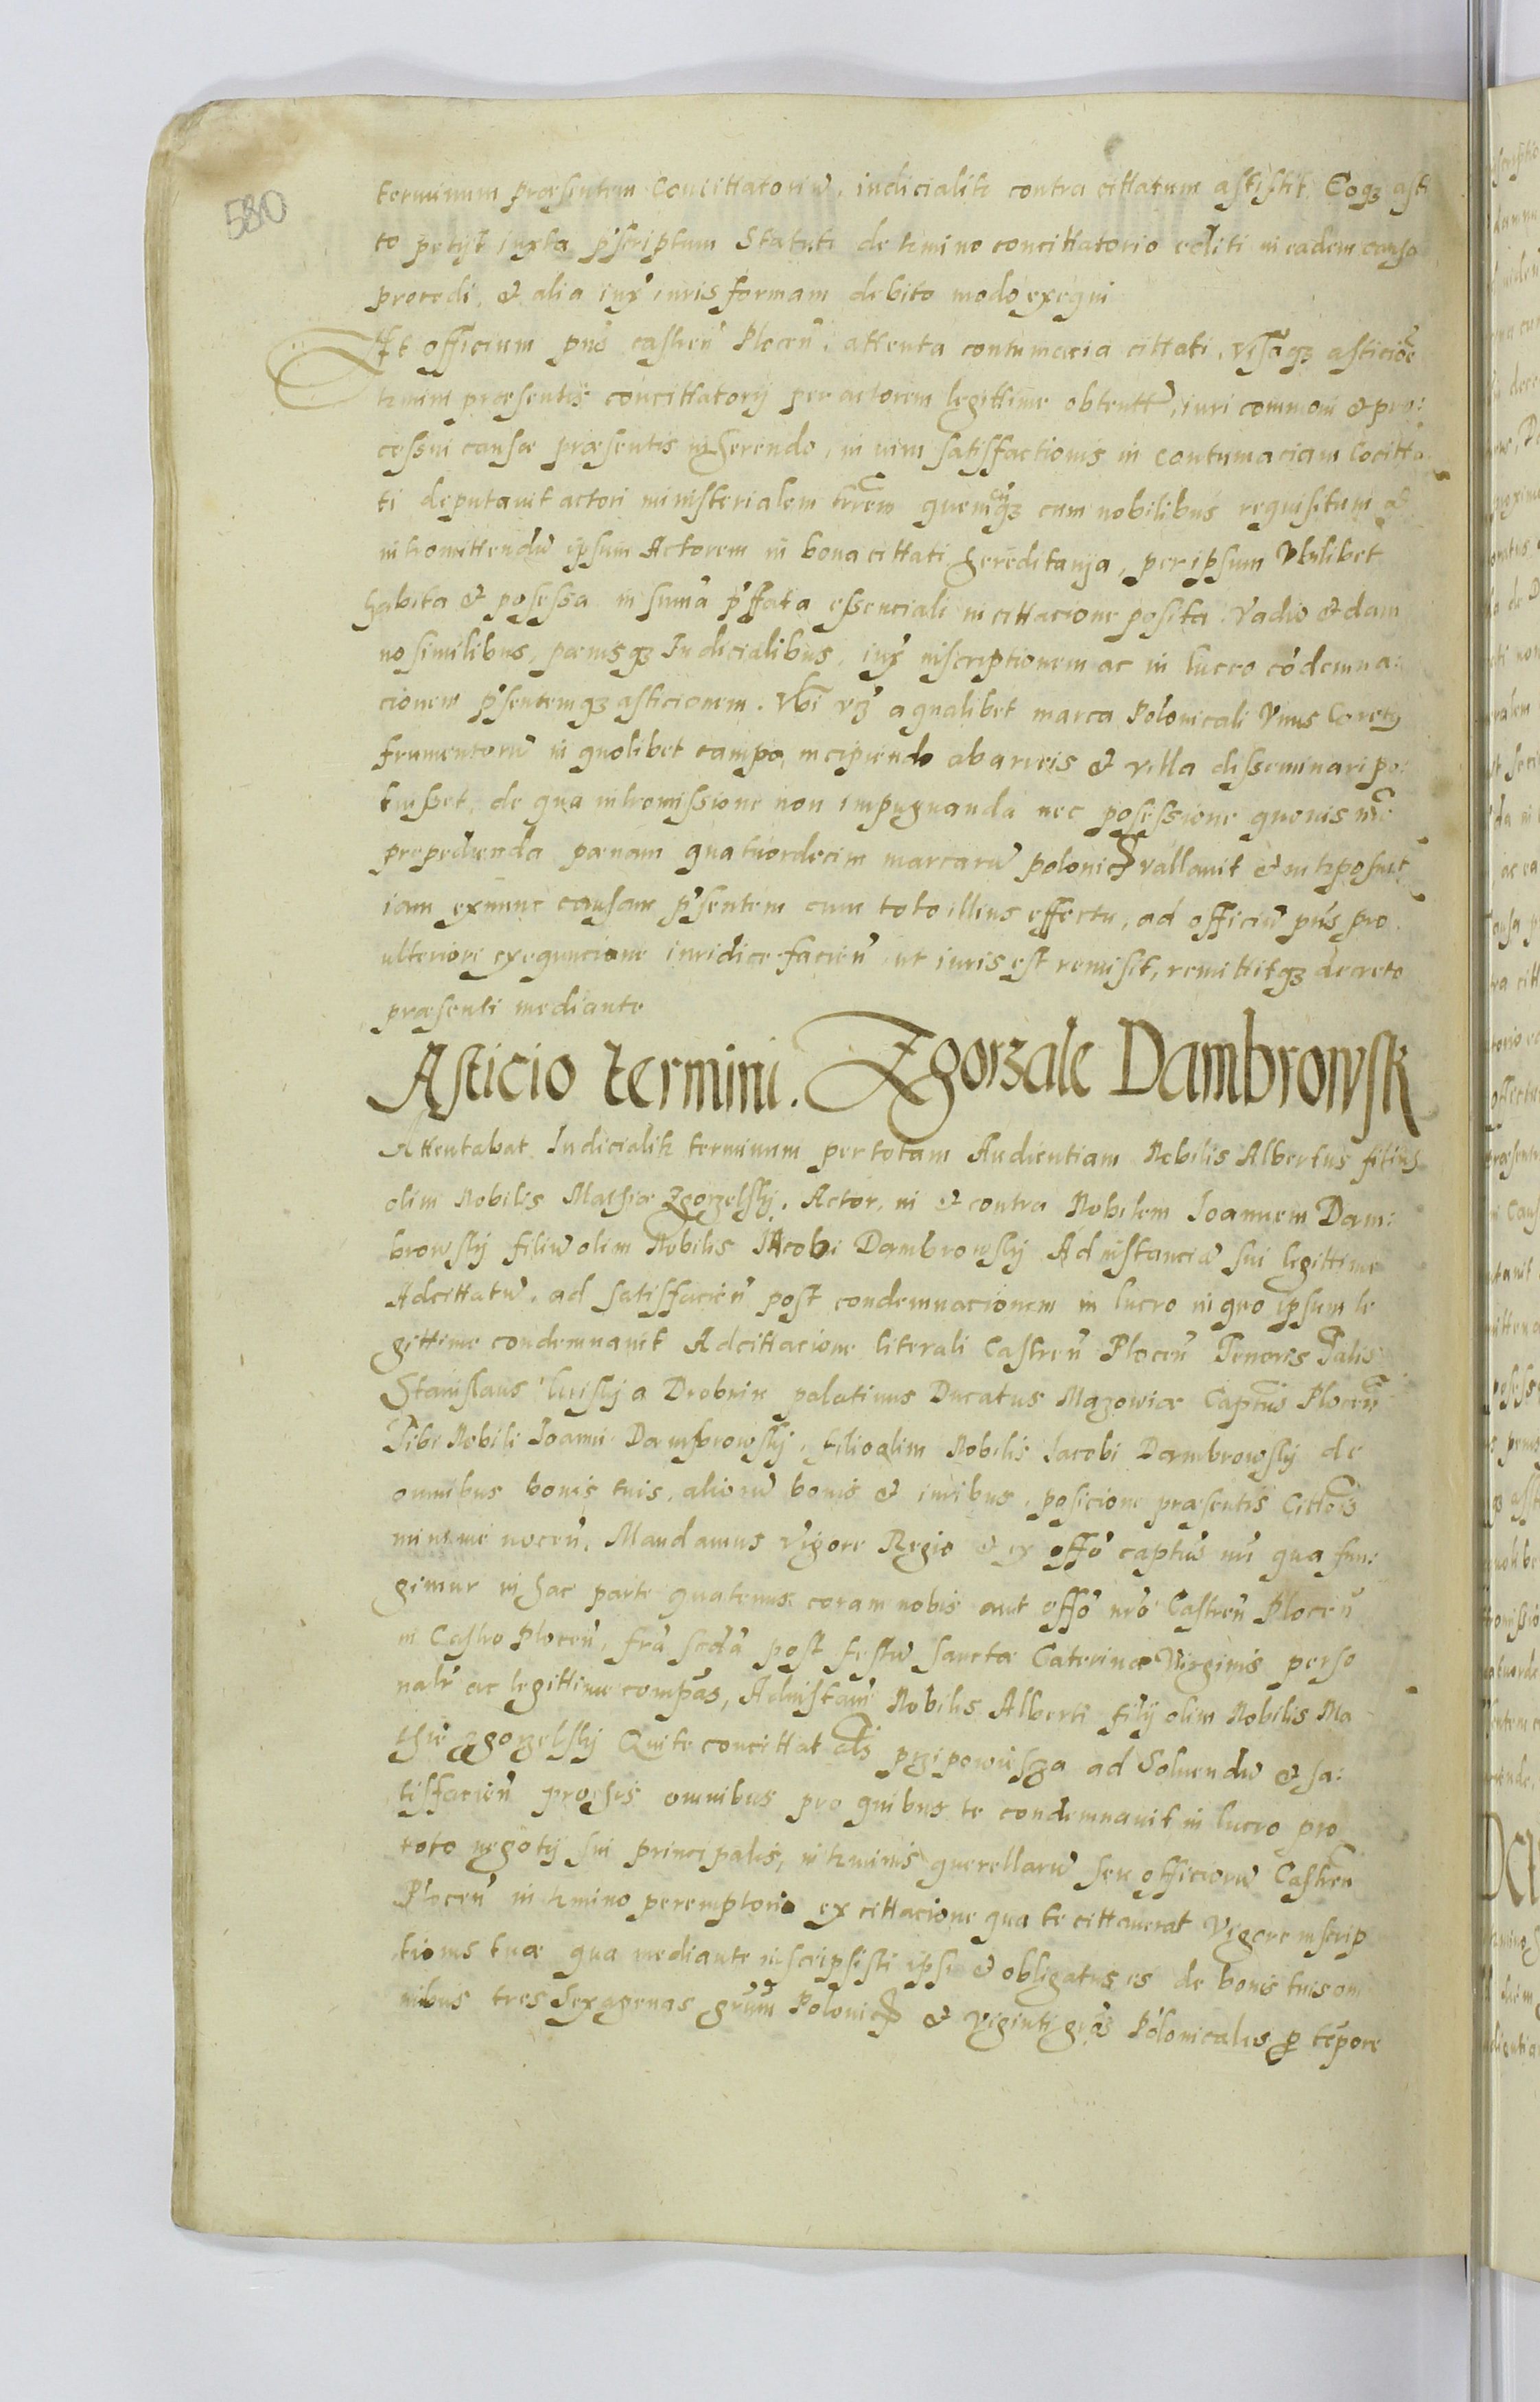 580
terminum præsentem Concittatoriũ, iudicialitr contra cittatum astitit, Eoqz asti
to petijt iuxta p̃scriptum Statuti de tmino concittatorio editi in eadem causa
procedi, & alia iux̃ iuris formam debito modo exequi
At officium pñs castreñ Plocen̄, attenta contumacia cittati, visaqz asticiõe
tmini præsentis concittatorij per actorem legittime obtent, iuri commoni & pro:
cessui causæ præsentis inherendo, in vim satisfactionis in contumaciam Cocitta
ti deputauit actori ministerialem trrem quemcũqz cum nobilibus requisitum ad
intromittendũ ipsum Actorem in bona cittati hereditarija, per ipsum Vbilibet
habita & posessa in suma p̃ffata essenciali in cittacione posita, Vadio & dam
no similibus, pænisqz Iudicialibus, iux̃ inscriptionem ac in lucro cõdemna:
cionem p̃sentemqz asticionem. Vbi vz̃ a qualibet marca Polonicali Vnus Coretz
frumentorũ in quolibet campo, incipiendo ab areis & villa disseminari po:
tuisset, de qua intromissione non impugnanda nec posessione quouis mõ
prepedienda pænam quatuordecim marcarũ polonic vallauit & intposuit
iam exnunc causam p̃sentem cum toto illius effectu, ad officiũ pñs pro
ulteriori exequucione iuridice facien̄, ut iuris est remisit, remittitqz decreto
præsenti mediante
Asticio termini. Zgorzale Dambrowsk
Attentabat Iudicialitr terminum per totam Audientiam Nobilis Albertus filius
olim Nobilis Mathiæ Zgorzelskij, Actor, in & contra Nobilem Joannem Dam:
browskij filiũ olim Nobilis IAcobi Dambrowskij Ad instanciã sui legittime
Adcittatũ, ad satisfacien̄ post condemnacionem in lucro in quo ipsum le
gittime condemnauit Adcittacione literali Castren̄ Plocen̄ Tenoris Talis
Stanislaus Kriskij a Drobnin palatinus Ducatus Mazowiæ Captũs Plocen̄
Tibi Nobili Joanni Dambrowskij, filio olim Nobilis Iacobi Dambrowskij de
omnibus bonis tuis, aliorũ bonis & iuribus, posicione præsentis Cittõis
minime nocen̄, Mandamus Vigore Regio & ex offõ captũs nrĩ qua fun:
gimur in hac parte quatenus coram nobis aut offõ nrõ Castren̄ Plocen̄
in Castro Plocen̄, fra scdã post festũ Sanctæ Caterinæ Virginis perso
nalr̃ ac legittime compãs, Ad instañ Nobilis Alberti filij olim Nobilis Ma
thiæ Zgorzelskij Qui te concittat als przipowiesza ad Soluendũ & sa:
tisfacien̄ pro his omnibus pro quibus te condemnauit in lucro pro
toto negotij sui principalis, in tminis querellarũ seu officiorũ Castren̄
Plocen̄ in tmino peremptorio ex cittacione qua te cittauerat Vigore inscrip
tionis tuæ qua mediante inscripsisti ipsi & obligatus es de bonis tuis om
nibus tres Sexagenas grum̃ Polonic & Viginti gros Polonicales p tempore